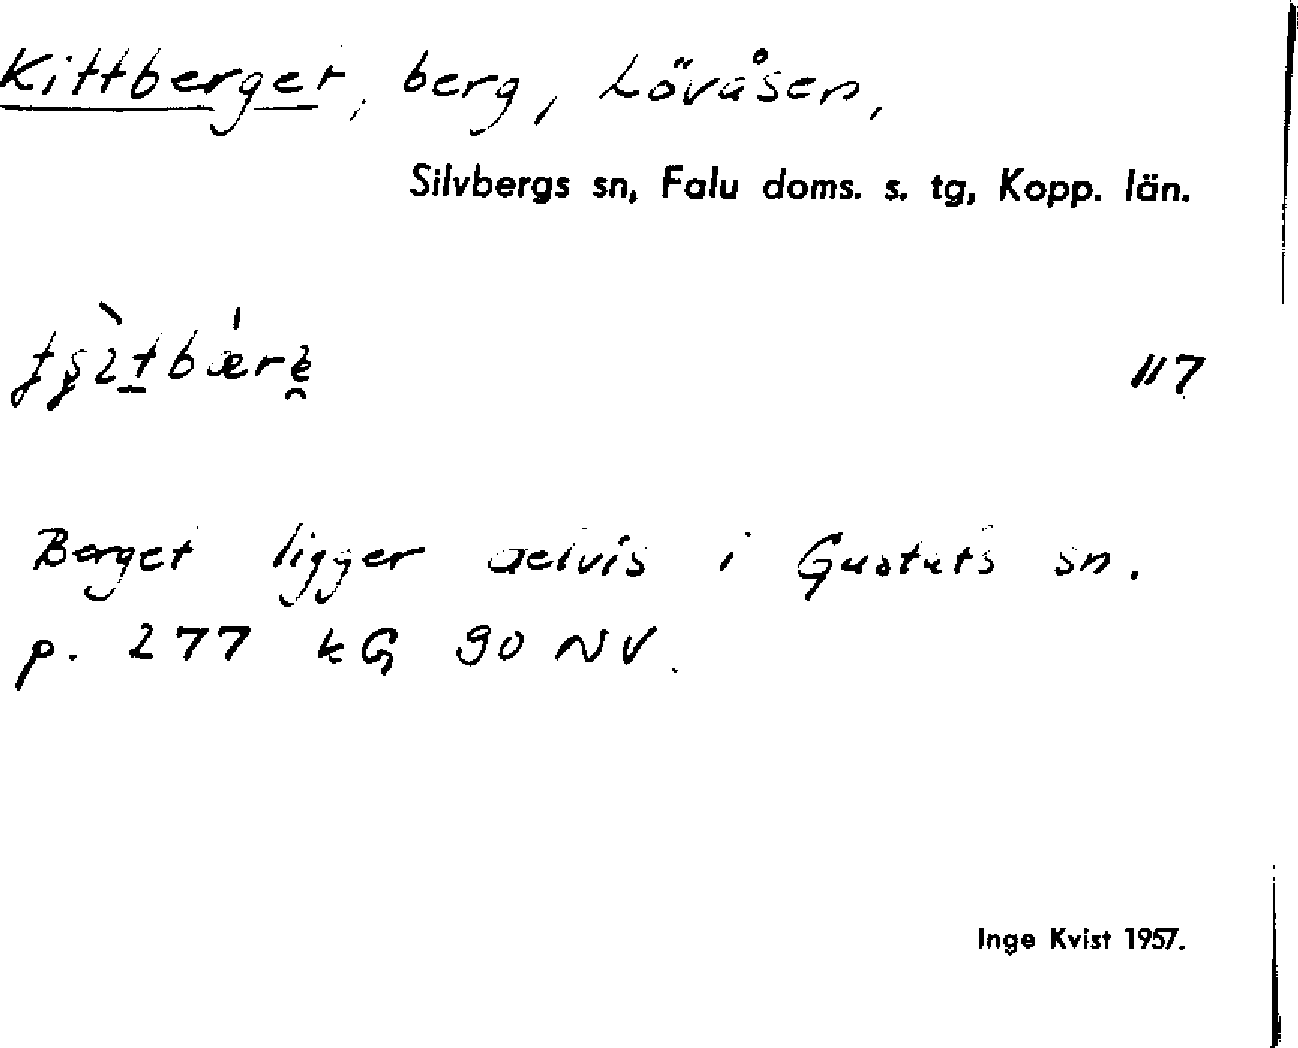 Kittberget, berg, Lövåsen,
Silvbergs sn, Falu doms. s. tg, Kopp. län.
117
Berget ligger delvis i Gustafs sn.
p. 277 kG 90 NV.
Inge Kvist 1957.